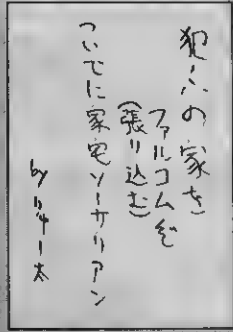 犯人の家を
ファルコムぞ
(張り込む)
ついでに家宅ソーサリアン
by りゅー太